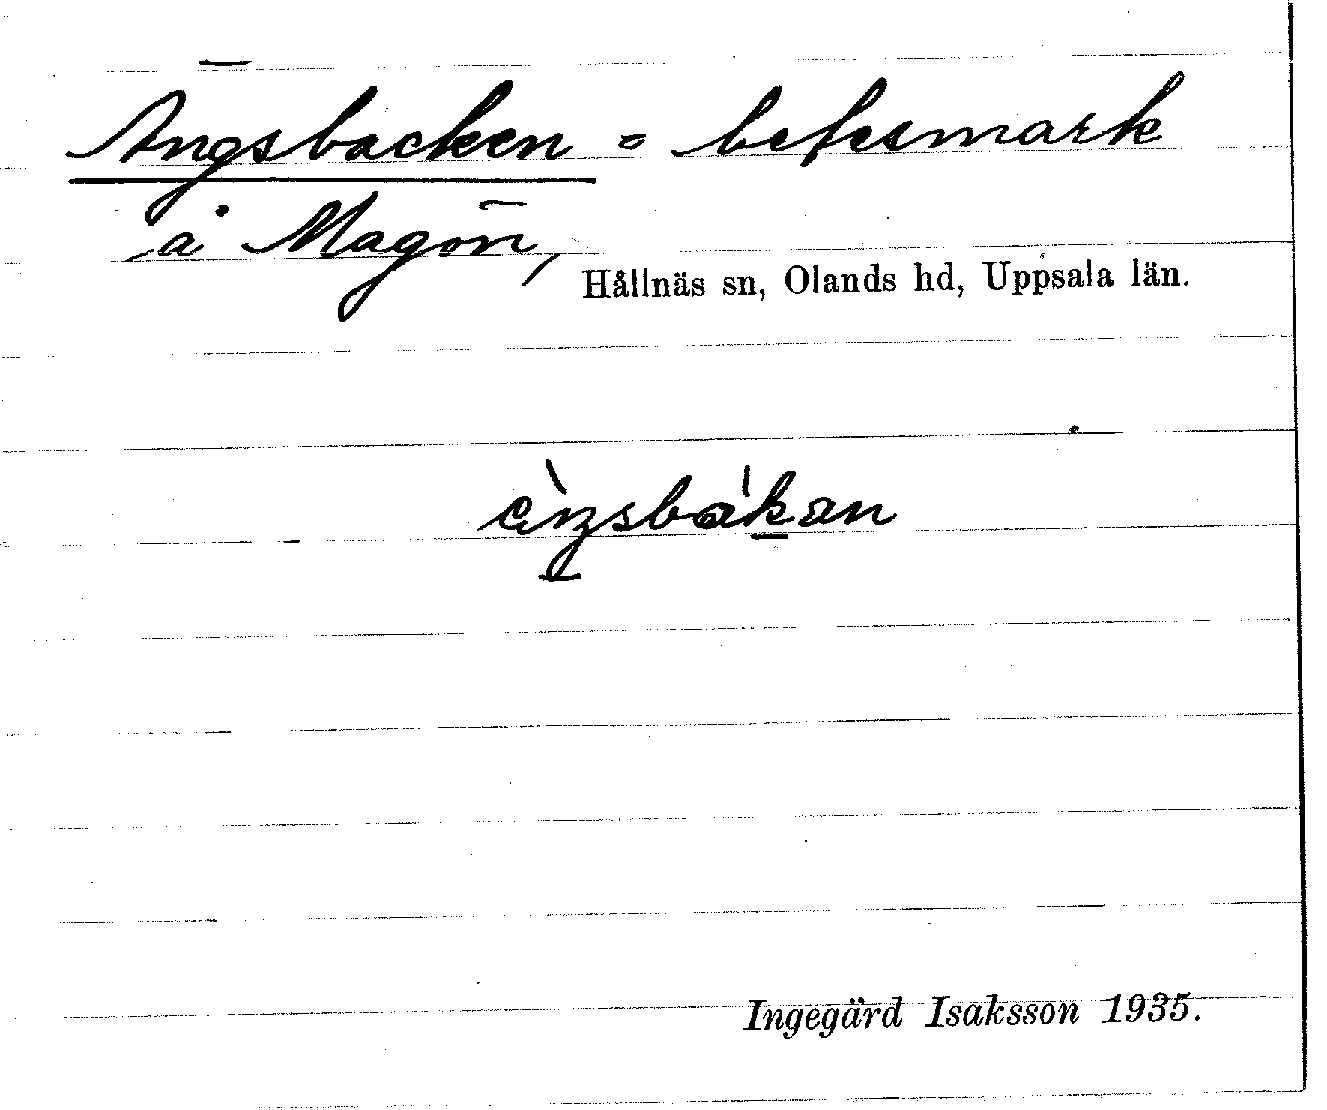 Ängsbacken = betesmark
å Magön,
Hållnäs sn, Olands hd, Uppsala län.
Ingegärd Isaksson 1935.